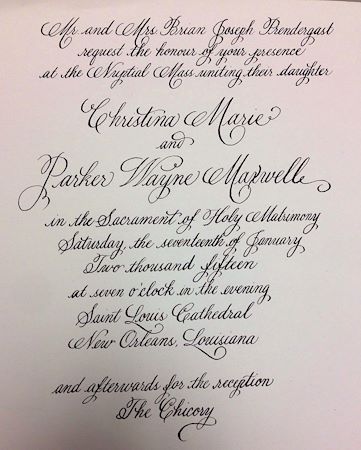 Mr. and Mrs. Brian Joseph Prendergast
request the honour of your presence
at the Nuptial Mass uniting their daughter
Christina Marie
and
Parker Wayne Maxwell
in the Sacrament of Holy Matrimony
Saturday, the seventeenth of January
Two thousand fifteen
at seven o'clock in the evening
Saint Louis Cathedral
New Orleans, Louisiana
and afterwards for the reception
The Chicory